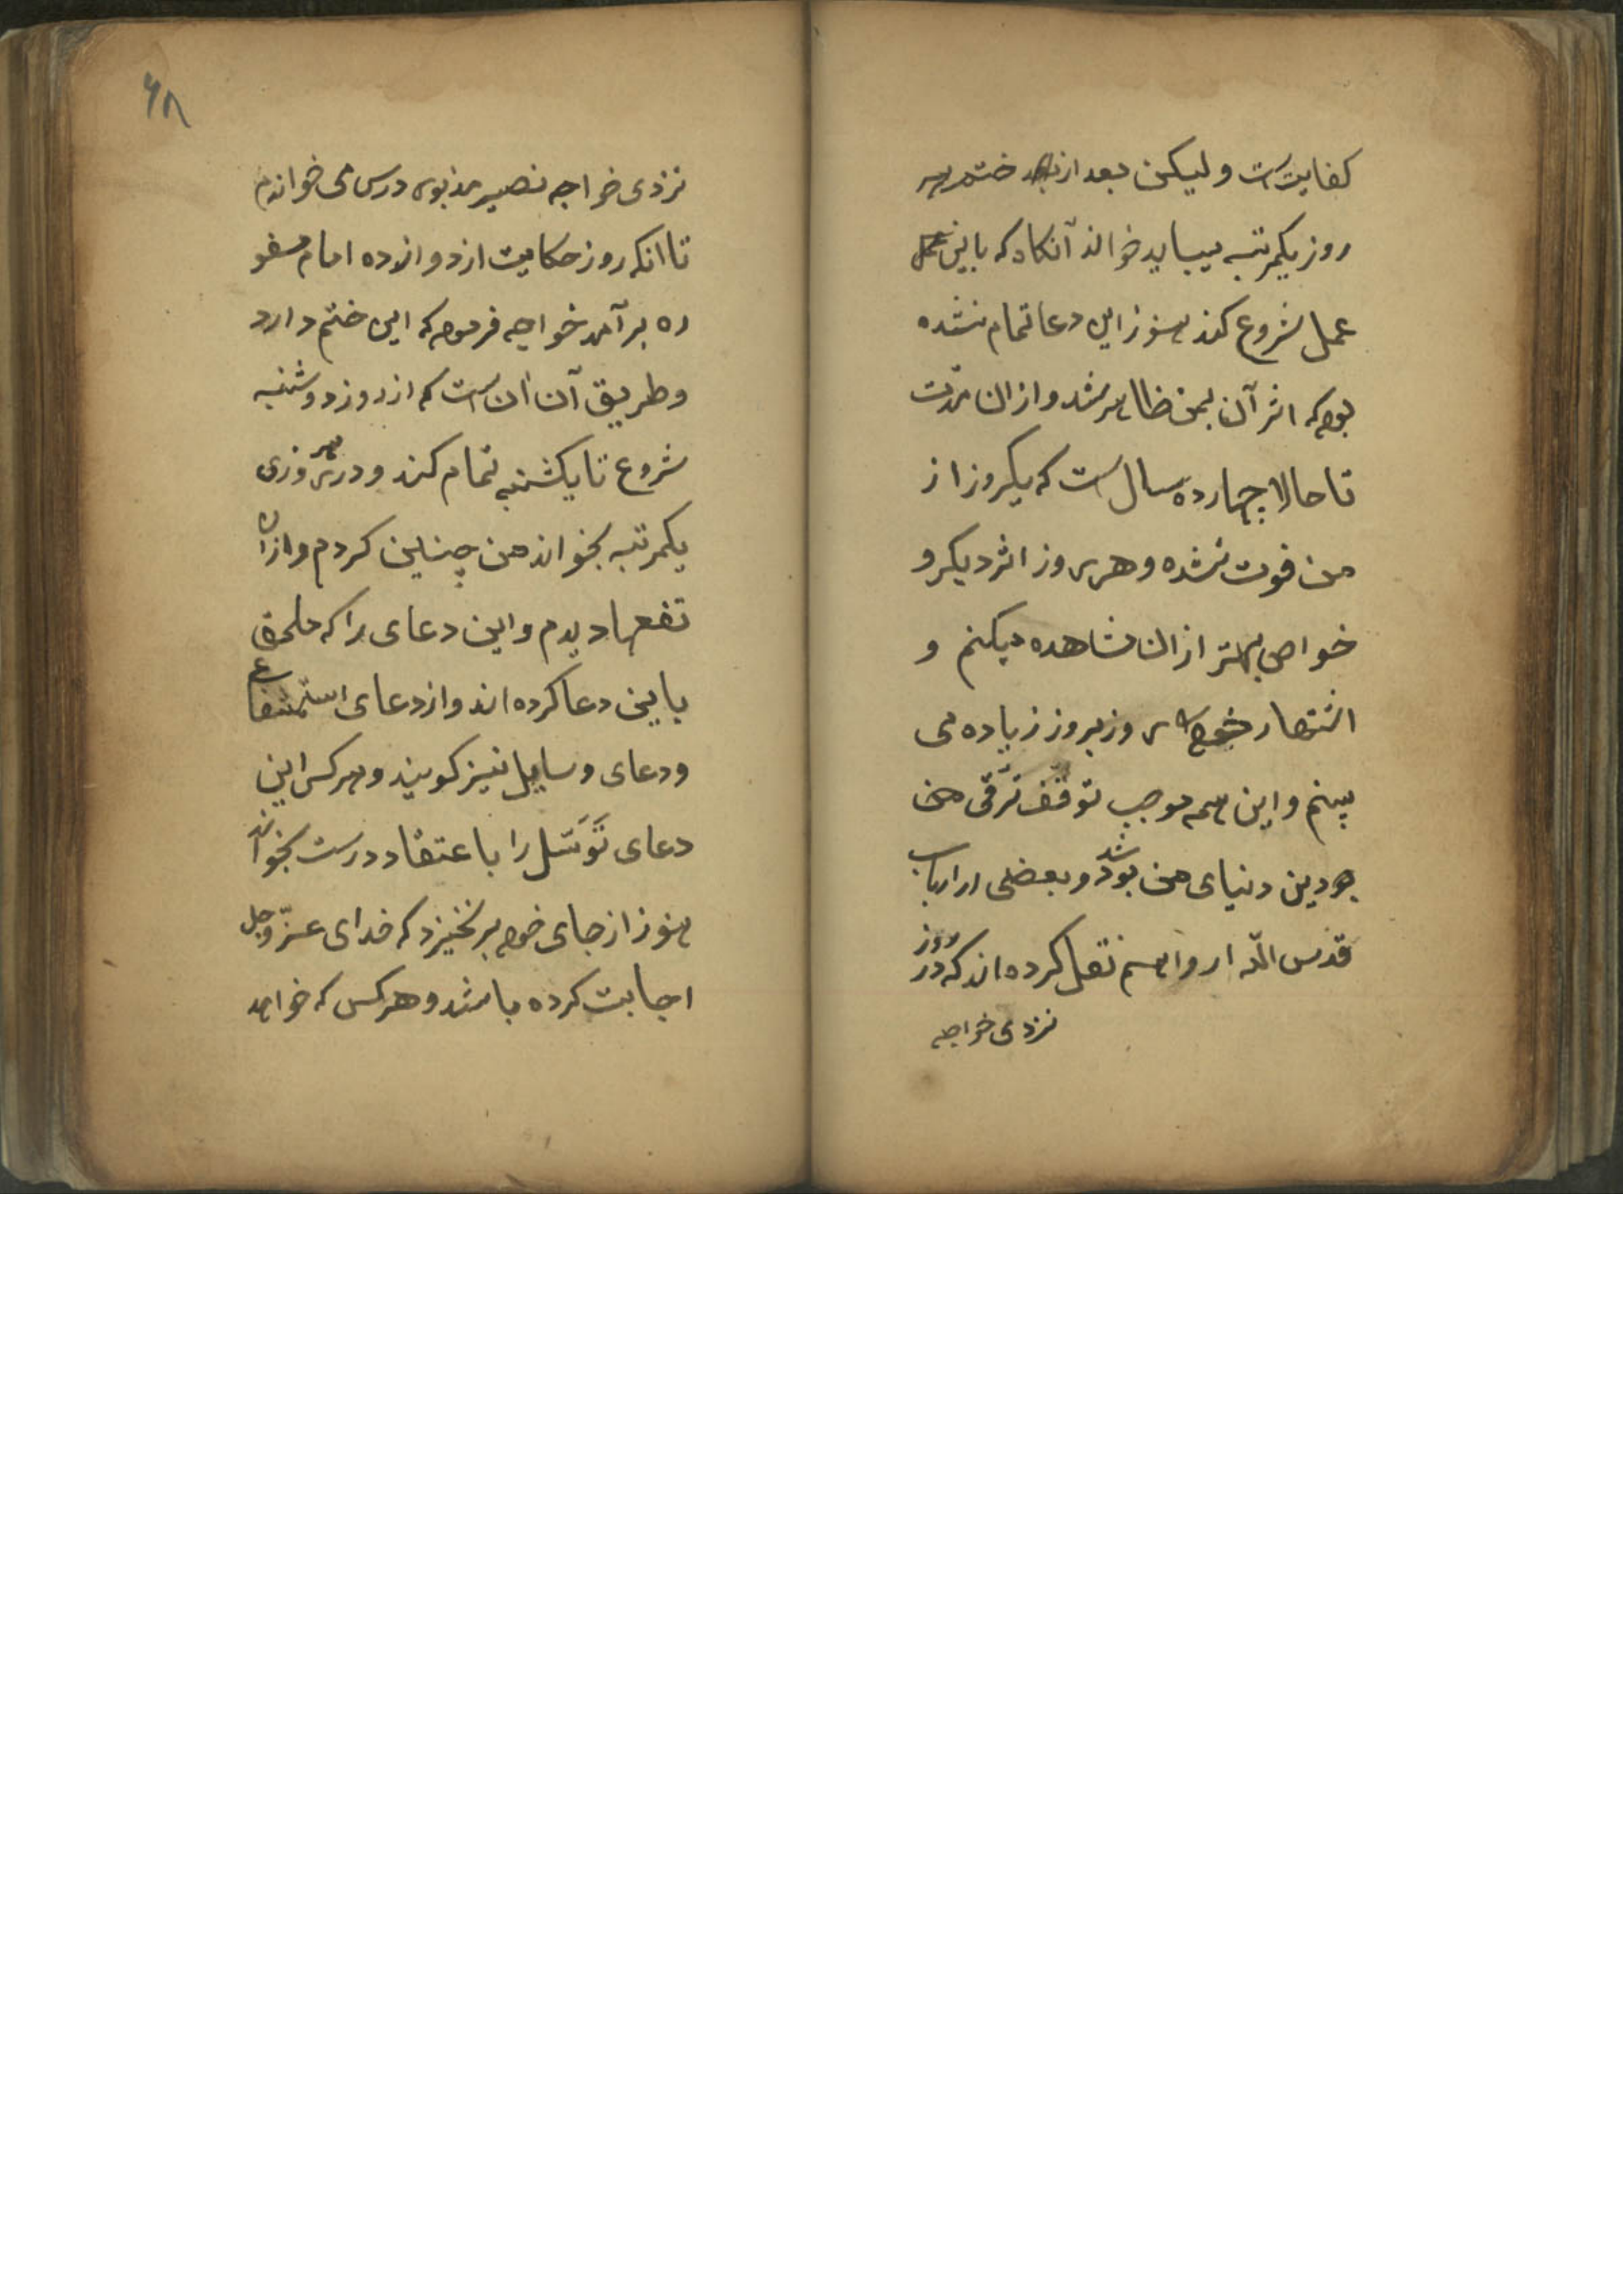 کفایت است و لیکن بعد از ختم هر
روز یکمرتبه میباید خواند آنکاه که باین
عمل شروع کند هنوز این دعا تمام نشده
بود که اثر آن بمن ظاهر شد و از ان مدّت
تا حالا چهارده سال است که یکروز از
من فوت نشده و هر روز اثر دیکر و
خواص بهتر از ان مشاهده میکنم و
اشتهار خود را روز بروز زیاده می
بینم و این همه موجب توقف ترقی من
بود دین دنیای من شد و بعضی از ارباب
قدس اللّه ارواحهم نقل کرده اند که در روز
نزدی خواجه
۶۸
نزدی خواجه نصیر مذبور درس می خواندم
تا انکه روز حکایت از دوازده امام سفو
ره بر آمد خواجه فرمود که این ختم دارد
و طریق آن ان است که از روز دوشنبه
شروع تا یکشنبه تمام کند و در هر روزی
یکمرتبه بخواند من چنین کردم و ازان
نفعها دیدم و این دعای را که ملحق
باین دعا کرده اند و از دعای استشفاع
و دعای وسایل نیز کویند و هر کس این
دعای تَوَسّل را با عتقاد درست بخواند
هنوز از جای خود بر نخیزد که خدای عزّ وجل
اجابت کرده باشد و هر کس که خواهد